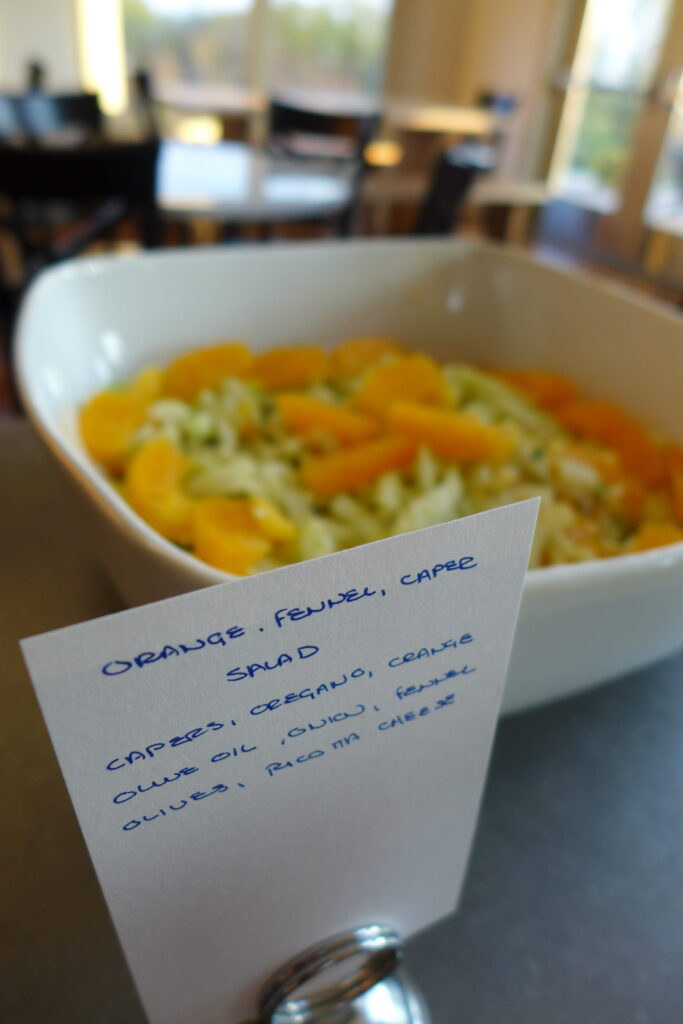 ORANGE. FENNEL, CAPER
SALAD
CAPERS, OREGANO, ORANGE
OLIVE OIL, ONION, FENNEL
OLIVES, RICOTTA CHEESE